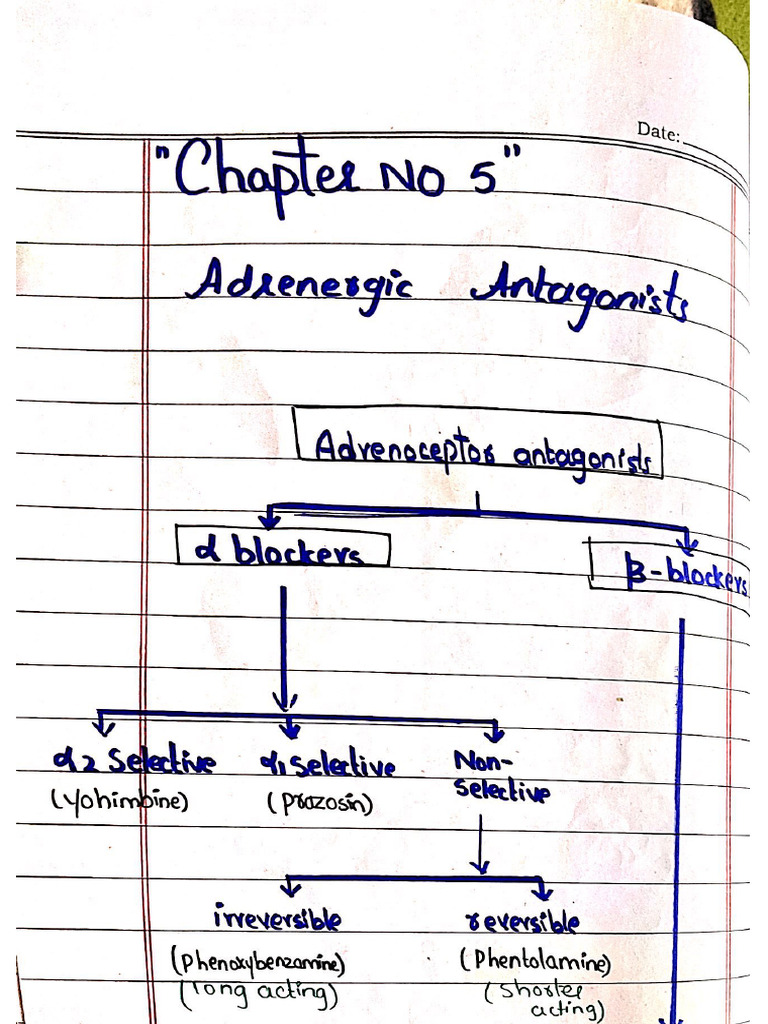 Date:
"Chapter NO 5"
Adrenergic Antagonists
Adrenoceptor antagonists
α blockers
β-blockers
α2 Selective
(Yohimbine)
α1 Selective
(prazosin)
Non-
Selective
irreversible
(Phenoxybenzamine)
(long acting)
reversible
(Phentolamine)
(Shorter
acting)